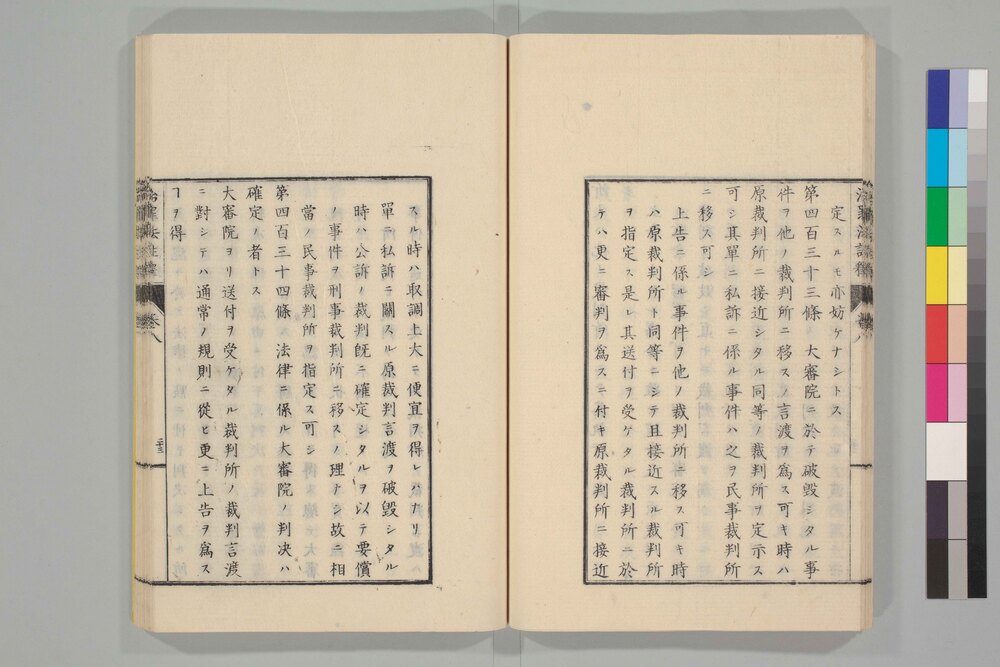 定スルモ亦妨ケナシトス
第四百三十三條ハ大審院ニ於テ破毀シタル事
件ヲ他ノ裁判所ニ移スノ言渡ヲ爲ス可キ時ハ
原裁判所ニ接近シタル同等ノ裁判所ヲ定示ス
可シ其單ニ私訴ニ係ル事件ハ之ヲ民事裁判所
ニ移ス可シ
上告ニ係ル事件ヲ他ノ裁判所ニ移ス可キ時
ハ原裁判所ト同等ニシテ且接近スル裁判所
ヲ指定ス是レ其送付ヲ受ケタル裁判所ニ於
テハ更ニ審判ヲ爲スニ付キ原裁判所ニ接近
スル時ハ取調上大ニ便宜ヲ得レハナリ
單ニ私訴ニ關スル原裁判言渡ヲ破毀シタル
時ハ公訴ノ裁判既ニ確定シタルヲ以テ要償
ノ事件ヲ刑事裁判所ニ移スノ理ナシ故ニ相
當ノ民事裁判所ヲ指定ス可シ
第四百三十四條ハ法律ニ係ル大審院ノ判決ハ
確定ノ者トス
大審院ヨリ送付ヲ受ケタル裁判所ノ裁判言渡
ニ對シテハ通常ノ規則ニ從ヒ更ニ上告ヲ爲ス
ヿヲ得
卷八